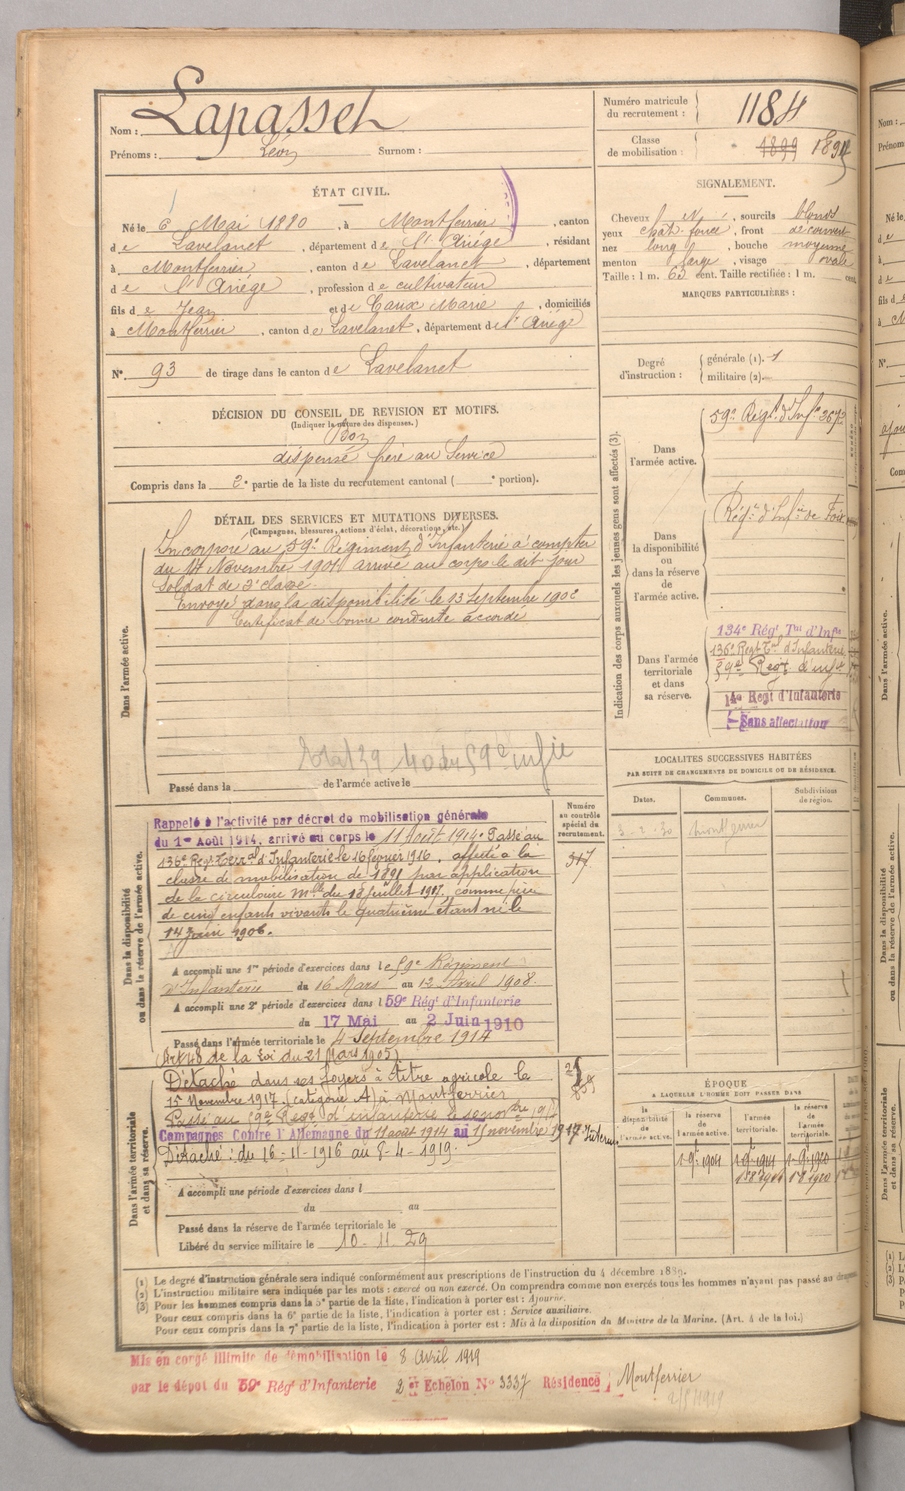 Nom : Lapasset
Prénoms : Léon Surnom :
Numéro matricule du recrutement : 1184
Classe de mobilisation : 1899 1891
ÉTAT CIVIL.
Né le 6 Mai 1880, à Montferrier, canton
de Lavelanet, département de l'Ariège, résidant
à Montferrier, canton de Lavelanet, département
de l'Ariège, profession de cultivateur
fils de Jean et de Caux Marie, domiciliés
à Montferrier, canton de Lavelanet, département de l'Ariège
N° 93 de tirage dans le canton de Lavelanet
DÉCISION DU CONSEIL DE REVISION ET MOTIFS.
(Indiquer la nature des dispenses.)
Bon
dispensé frère au Service
Compris dans la 2e partie de la liste du recrutement cantonal ( e portion).
DÉTAIL DES SERVICES ET MUTATIONS DIVERSES.
(Campagnes, blessures, actions d'éclat, décorations, etc.)
Dans l'armée active.
Incorporé au 59e Régiment d'Infanterie à compter
du 14 Novembre 1901 arrivé au corps le dit jour
Soldat de 2e classe.
Envoyé dans la disponibilité le 23 Septembre 1902
Certificat de bonne conduite accordé
59e infie
Passé dans la de l'armée active le
Dans la disponibilité ou dans la réserve de l'armée active.
Numéro au contrôle spécial du recrutement.
317
Rappelé à l'activité par décret de mobilisation générale
du 1er Août 1914, arrivé au corps le 11 Août 1914. Passé au
136e Régt Terral d'Infanterie le 16 février 1916. affecté à la
classe de mobilisation de 1891 par application
de la circulaire Mlle du 18 juillet 1917, comme père
de cinq enfants vivants le quatrième étant né le
14 Juin 1906.
A accompli une 1re période d'exercices dans le 59e Régiment
d'Infanterie du 16 Mars au 12 Avril 1908.
A accompli une 2e période d'exercices dans l 59e Régt d'Infanterie
du 17 Mai au 2 Juin 1910
Passé dans l'armée territoriale le 4 Septembre 1914
(Art 48 de la Loi du 21 Mars 1905)
Dans l'armée territoriale et dans sa réserve.
Détaché dans ses foyers à titre agricole le
15 Novembre 1917. (catégorie A) à Montferrier
Passé au 59e Régt d'infanterie le
Campagnes Contre l'Allemagne du 11 août 1914 au 15 novembre 1917
Détaché : du 16-11-1916 au 8-4-1919.
A accompli une période d'exercices dans l
du au
Passé dans la réserve de l'armée territoriale le
Libéré du service militaire le 10-11-29
SIGNALEMENT.
Cheveux, sourcils blonds
yeux chât. foncé, front découvert
nez long, bouche moyenne
menton large, visage ovale
Taille : 1 m. 63 cent. Taille rectifiée : 1 m. cent.
MARQUES PARTICULIÈRES :
Degré d'instruction : générale (1). 1
militaire (2).
Indication des corps auxquels les jeunes gens sont affectés (3).
Dans l'armée active.
59e Régt d'Infie 3673
Dans la disponibilité ou dans la réserve de l'armée active.
Régt d'Infie de Foix
Dans l'armée territoriale et dans sa réserve.
134e Régt Tal d'Infie
136e Regt Tal d'Infanterie
59e Regt d'inf
14e Regt d'Infanterie
Sans affectation
LOCALITES SUCCESSIVES HABITÉES
PAR SUITE DE CHANGEMENTS DE DOMICILE OU DE RÉSIDENCE.
Dates. Communes. Subdivisions de région.
3-2-30 Montferrier
ÉPOQUE
A LAQUELLE L'HOMME DOIT PASSER DANS
la disponibilité de l'armée active. la réserve de l'armée active. l'armée territoriale. la réserve de l'armée territoriale.
1-9-1904 1-9-1914 1-9-1920
(1) Le degré d'instruction générale sera indiqué conformément aux prescriptions de l'instruction du 4 décembre 1889.
(2) L'instruction militaire sera indiquée par les mots : exercé ou non exercé. On comprendra comme non exercés tous les hommes n'ayant pas passé au
(3) Pour les hommes compris dans la 5e partie de la liste, l'indication à porter est : Ajourné.
Pour ceux compris dans la 6e partie de la liste, l'indication à porter est : Service auxiliaire.
Pour ceux compris dans la 7e partie de la liste, l'indication à porter est : Mis à la disposition du Ministre de la Marine. (Art. 4 de la loi.)
Mis en congé illimité de démobilisation le 8 Avril 1919
par le dépot du 59e Régt d'Infanterie 2 Echelon N° 3337 Résidence Montferrier